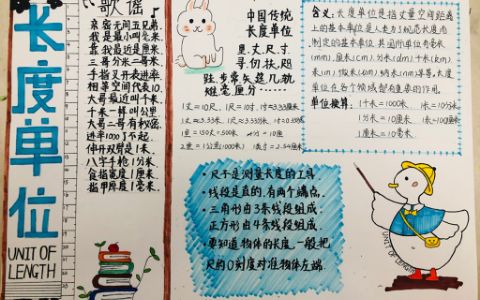 长度单位
UNIT OF
LENGTH
歌谣
亲密无间五兄弟.
我是最小叫毫米.
靠我最近是厘米.
三哥分米二哥米.
手指叉开表进率
相等空间代表10.
大哥最近叫千米.
千米一样叫公里
大哥二哥有秘密.
进率1000了不起.
伸开双臂是1米.
八字手枪1分米.
食指宽度1厘米.
指甲厚度1毫米.
中国传统
长度单位
里.丈.尺.寸.
寻.仞.扶.咫.
1丈=10尺
1尺=10寸
1丈=3.33米
1尺=3.33分米
1寸=3.33厘米
1里=150丈=500米
2里=1公里(1000米)
·尺子是测量长度的工具.
·线段是直的.有两个端点.
·三角形由3条线段组成.
正方形由4条线段组成.
·要知道物体的长度.一般把
尺的0刻度对准物体左端.
含义:长度单位是指丈量空间距离
上的基本单位.是人类为了规范长度而
制定的基本单位.其国际单位是毫米
(mm).厘米(cm).分米(dm).千米(km).
米(m).微米(um).纳米(nm)等等.长度
单位在各个领域都有重要的作用.
单位换算:
1千米=1000米
1米=10分米
1分米=10厘米
1米=100厘米
1厘米=10毫米
UNIT OF LENGTH